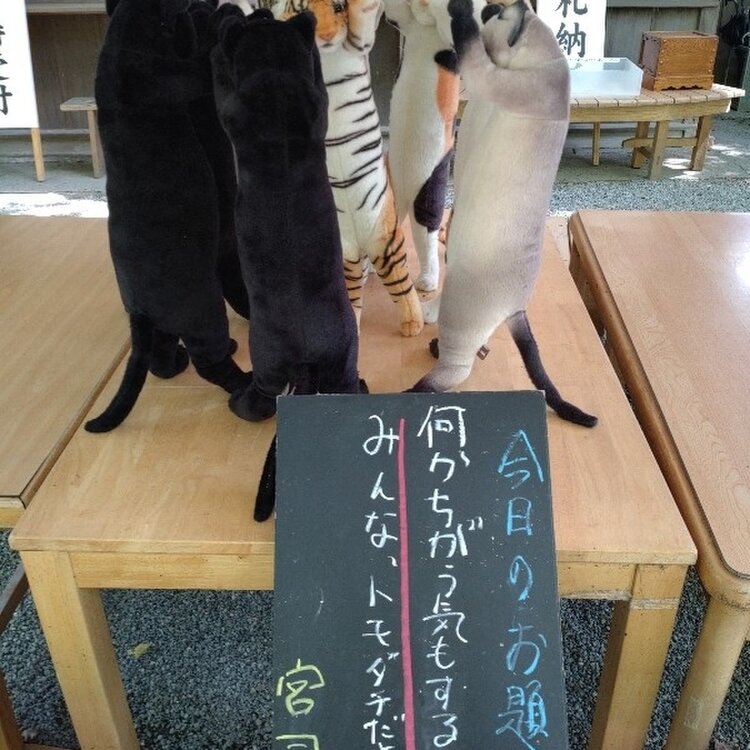 今日のお題
何かちがう気もする
みんな、トモダチだ
宮司
札納